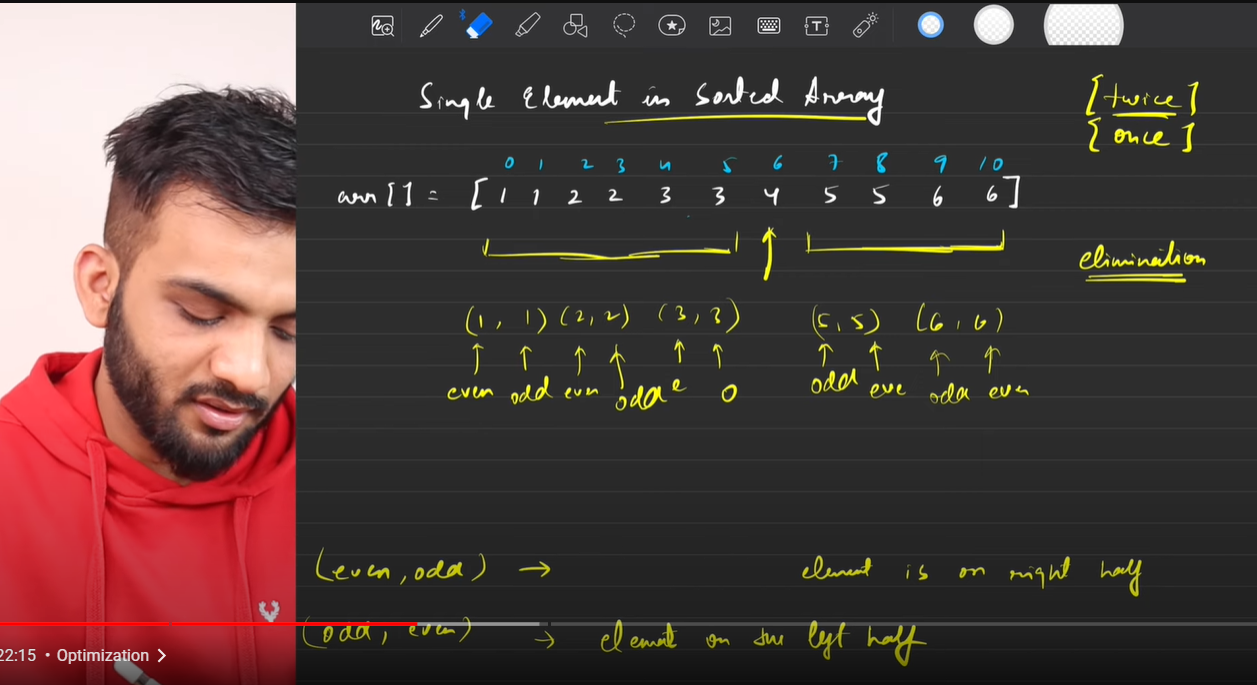 Single Element in Sorted Array
[twice]
[once]
0 1 2 3 4 5 6 7 8 9 10
arr [ ] = [ 1 1 2 2 3 3 4 5 5 6 6 ]
elimination
(1, 1) (2, 2) (3, 3) (5, 5) (6, 6)
even odd even odd e o odd eve odd even
(even, odd) → element is on right half
(odd, even) → element on the left half
22:15 • Optimization >
T